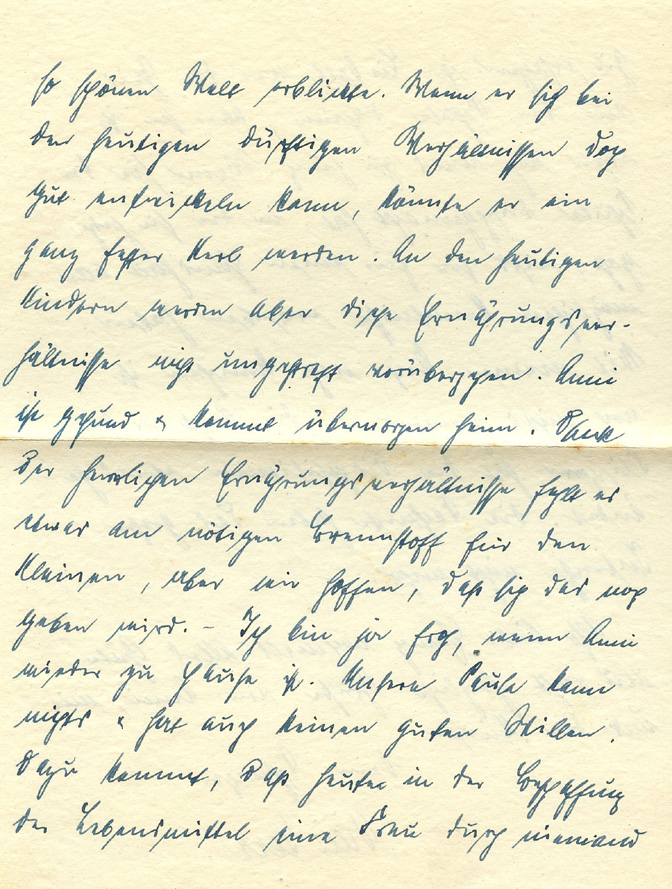 so schönen Welt erblickte. Wenn er sich bei
den heutigen dürftigen Verhältnissen doch
gut entwickeln kann, könnte er ein
ganz fescher Kerl werden. An den heutigen
Kindern werden aber diese Ernährungsver-
hältnisse nicht ungestraft vorübergehen. Anni
ist gesund & kommt übermorgen heim. Dank
der herrlichen Ernährungsverhältnisse fehlt es
etwas am nötigen Brennstoff für den
Kleinen, aber wir hoffen, daß sich das noch
geben wird. – Ich bin ja froh, wenn Anni
wieder zu Hause ist. Unsere Paula kann
nichts & hat auch keinen guten Willen.
Dazu kommt, daß heute in der Beschaffung
der Lebensmittel eine Frau durch niemand